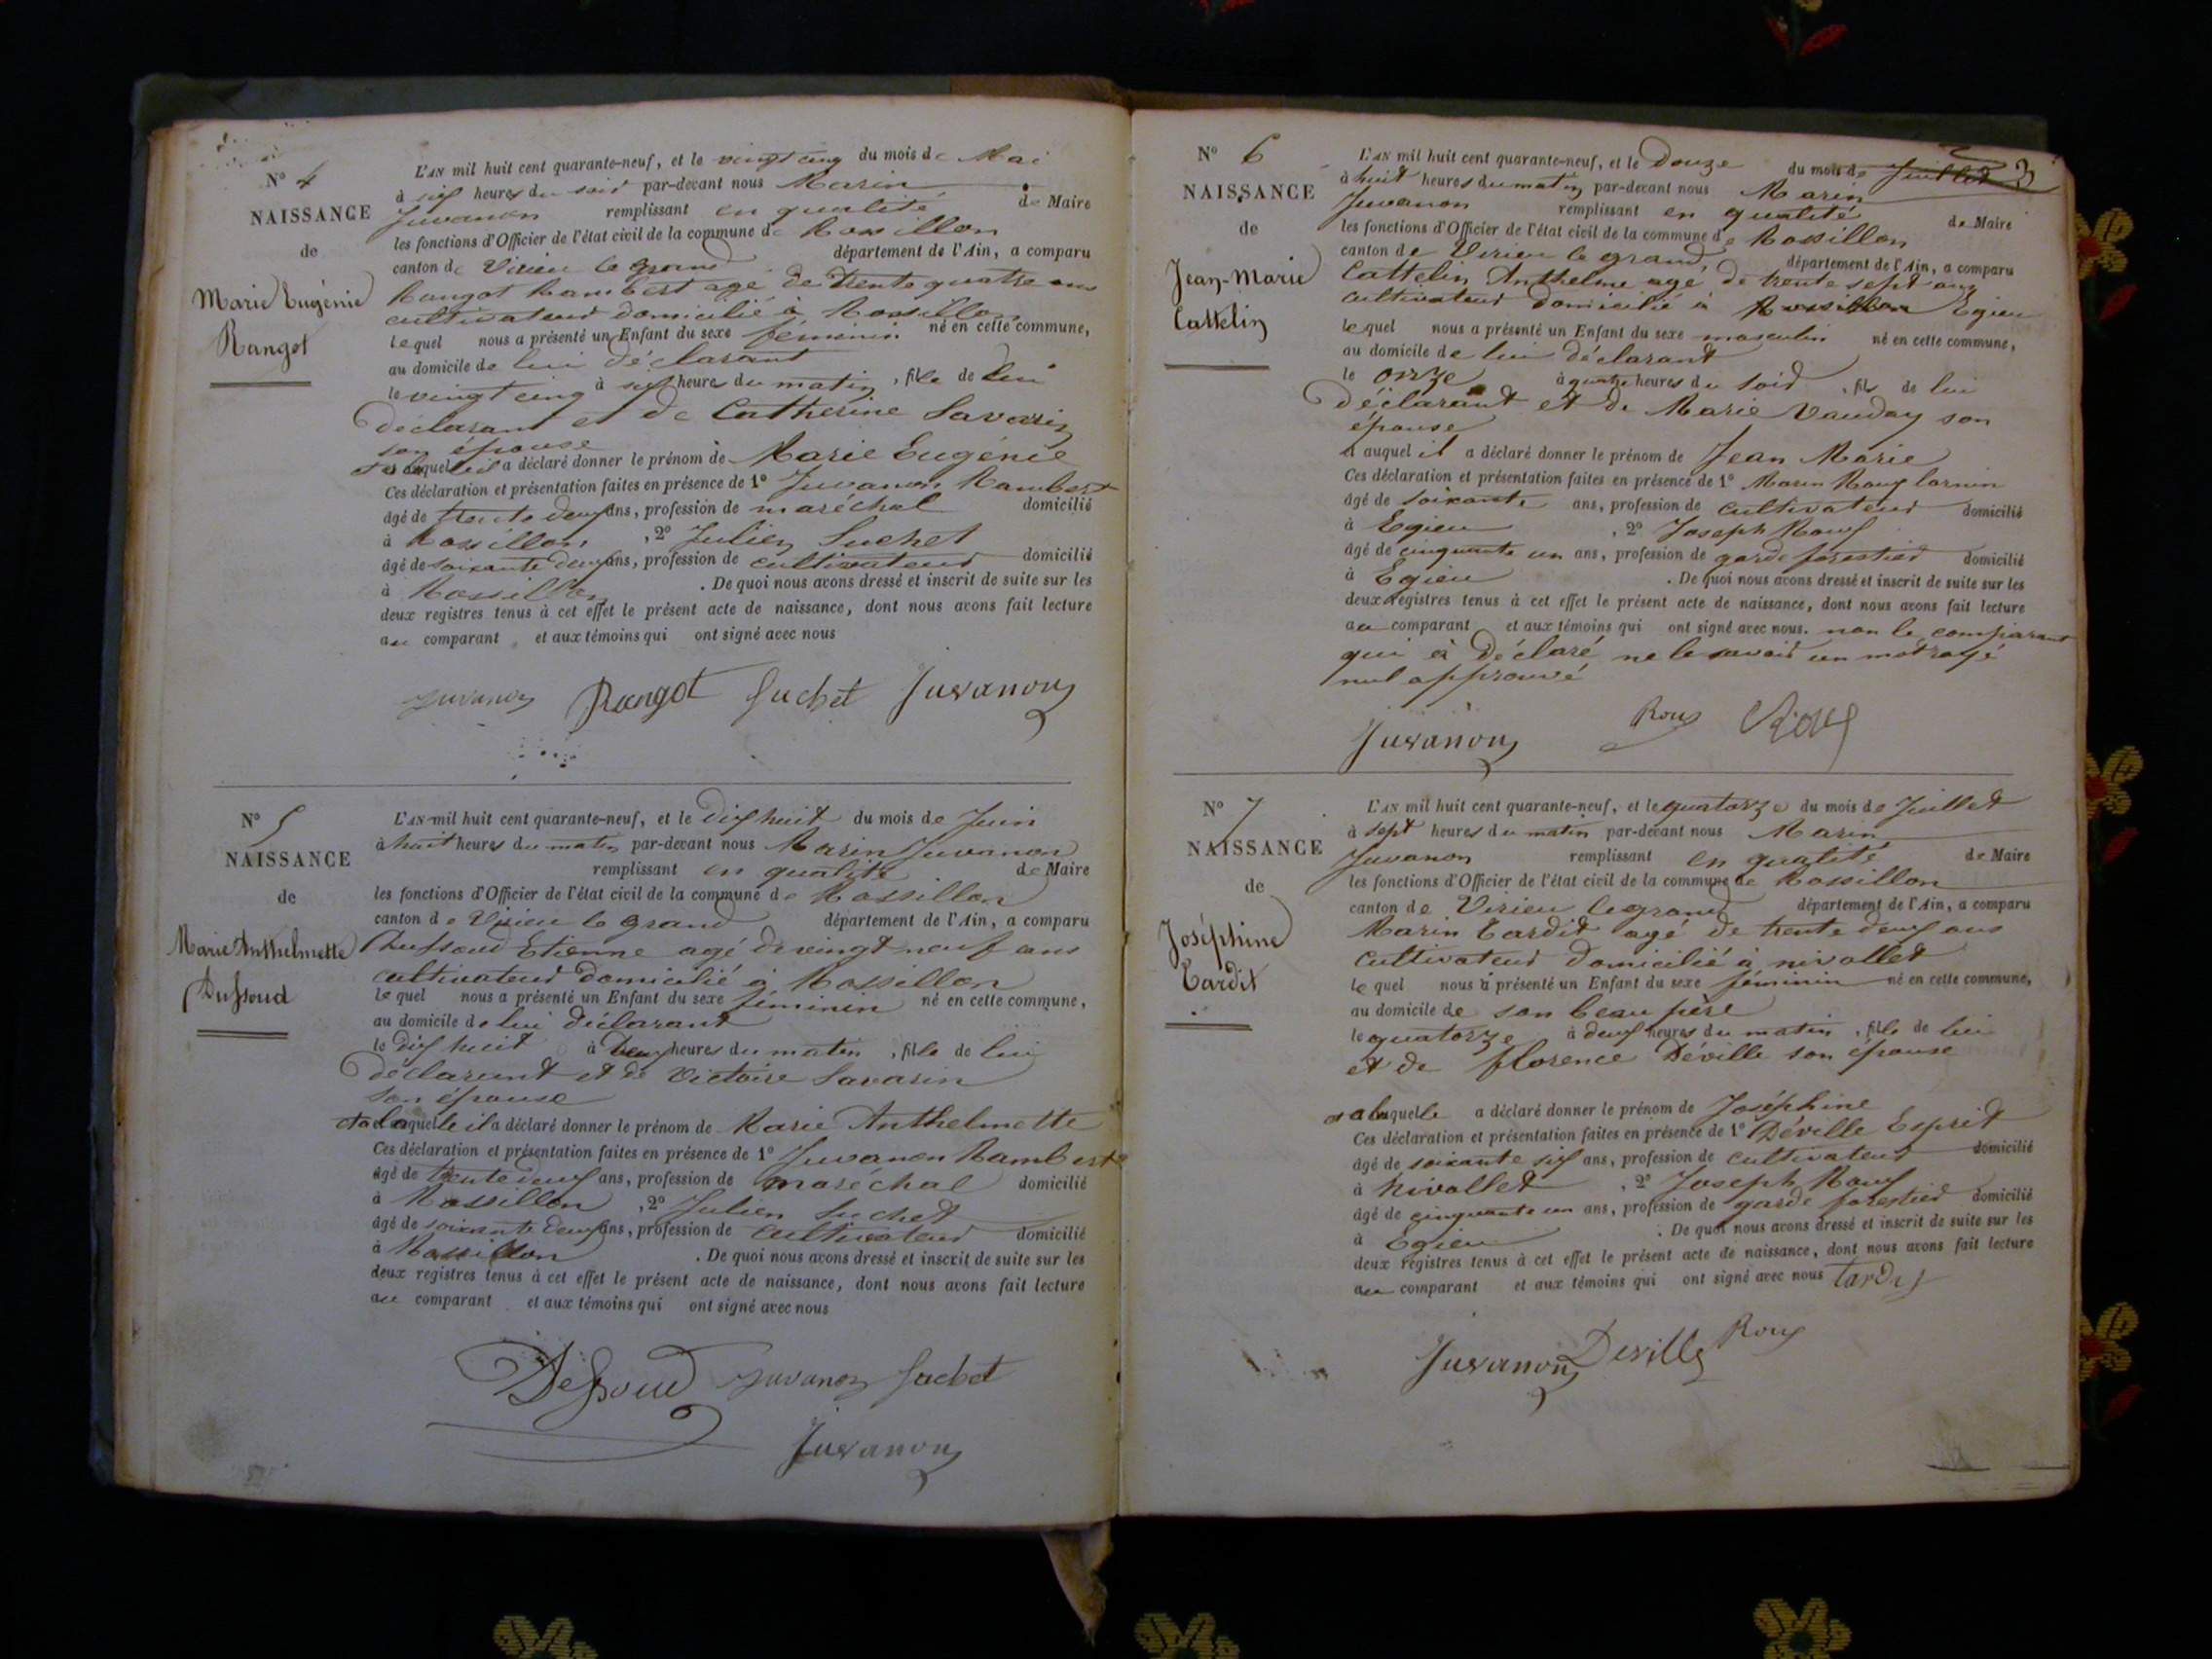 N° 4
NAISSANCE
de
Marie Eugénie
Rangot
L'AN mil huit cent quarante-neuf, et le vingt cinq du mois de Mai
à six heures du soir par-devant nous Marin
Juvanon remplissant en qualité de Maire
les fonctions d'Officier de l'état civil de la commune de Rossillon
canton de Virieu le grand département de l'Ain, a comparu
Rangot Rambert agé de trente quatre ans
cultivateur domicilié à Rossillon
lequel nous a présenté un Enfant du sexe féminin né en cette commune,
au domicile de lui déclarant
le vingt cinq à six heures du matin, fille de lui
déclarant et de Catherine Savarin
son épouse
et à laquelle il a déclaré donner le prénom de Marie Eugénie
Ces déclaration et présentation faites en présence de 1° Juvanon Rambert
âgé de trente deux ans, profession de maréchal domicilié
à Rossillon, 2° Julien Suchet
âgé de soixante deux ans, profession de cultivateur domicilié
à Rossillon. De quoi nous avons dressé et inscrit de suite sur les
deux registres tenus à cet effet le présent acte de naissance, dont nous avons fait lecture
au comparant et aux témoins qui ont signé avec nous
Juvanon Rangot Suchet Juvanon
N° 5
NAISSANCE
de
Marie Anthelmette
Dussoud
L'AN mil huit cent quarante-neuf, et le dix huit du mois de Juin
à huit heures du matin par-devant nous Marin Juvanon
remplissant en qualité de Maire
les fonctions d'Officier de l'état civil de la commune de Rossillon
canton de Virieu le grand département de l'Ain, a comparu
Dussoud Etienne agé de vingt neuf ans
cultivateur domicilié à Rossillon
lequel nous a présenté un Enfant du sexe féminin né en cette commune,
au domicile de lui déclarant
le dix huit à deux heures du matin, fille de lui
déclarant et de Victoire Savarin
son épouse
et à laquelle il a déclaré donner le prénom de Marie Anthelmette
Ces déclaration et présentation faites en présence de 1° Juvanon Rambert
âgé de trente deux ans, profession de maréchal domicilié
à Rossillon, 2° Julien Suchet
âgé de soixante deux ans, profession de cultivateur domicilié
à Rossillon. De quoi nous avons dressé et inscrit de suite sur les
deux registres tenus à cet effet le présent acte de naissance, dont nous avons fait lecture
au comparant et aux témoins qui ont signé avec nous
Dessoud Juvanon Suchet
Juvanon
3
N° 6
NAISSANCE
de
Jean-Marie
Cattelin
L'AN mil huit cent quarante-neuf, et le douze du mois de Juillet
à huit heures du matin par-devant nous Marin
Juvanon remplissant en qualité de Maire
les fonctions d'Officier de l'état civil de la commune de Rossillon
canton de Virieu le grand département de l'Ain, a comparu
Cattelin Anthelme agé de trente sept ans
cultivateur domicilié à Rossillon Egieu
lequel nous a présenté un Enfant du sexe masculin né en cette commune,
au domicile de lui déclarant
le onze à quatre heures du soir, fils de lui
déclarant et de Marie Vauday son
épouse
et auquel il a déclaré donner le prénom de Jean Marie
Ces déclaration et présentation faites en présence de 1° Marin Roux
âgé de soixante ans, profession de cultivateur domicilié
à Egieu, 2° Joseph Roux
âgé de cinquante un ans, profession de garde forestier domicilié
à Egieu. De quoi nous avons dressé et inscrit de suite sur les
deux registres tenus à cet effet le présent acte de naissance, dont nous avons fait lecture
au comparant et aux témoins qui ont signé avec nous. non le comparant
qui a déclaré ne le savoir un mot rayé
nul approuvé
Juvanon Roux Roux
N° 7
NAISSANCE
de
Joséphine
Tardit
L'AN mil huit cent quarante-neuf, et le quatorze du mois de Juillet
à sept heures du matin par-devant nous Marin
Juvanon remplissant en qualité de Maire
les fonctions d'Officier de l'état civil de la commune de Rossillon
canton de Virieu le grand département de l'Ain, a comparu
Marin Tardit agé de trente deux ans
cultivateur domicilié à nivollet
lequel nous a présenté un Enfant du sexe féminin né en cette commune,
au domicile de son beau père
le quatorze à deux heures du matin, fille de lui
et de florence Déville son épouse
et à laquelle a déclaré donner le prénom de Joséphine
Ces déclaration et présentation faites en présence de 1° Déville Esprit
âgé de soixante six ans, profession de cultivateur domicilié
à Nivollet, 2° Joseph Roux
âgé de cinquante un ans, profession de garde forestier domicilié
à Egieu. De quoi nous avons dressé et inscrit de suite sur les
deux registres tenus à cet effet le présent acte de naissance, dont nous avons fait lecture
au comparant et aux témoins qui ont signé avec nous Tardy
Juvanon Deville Roux